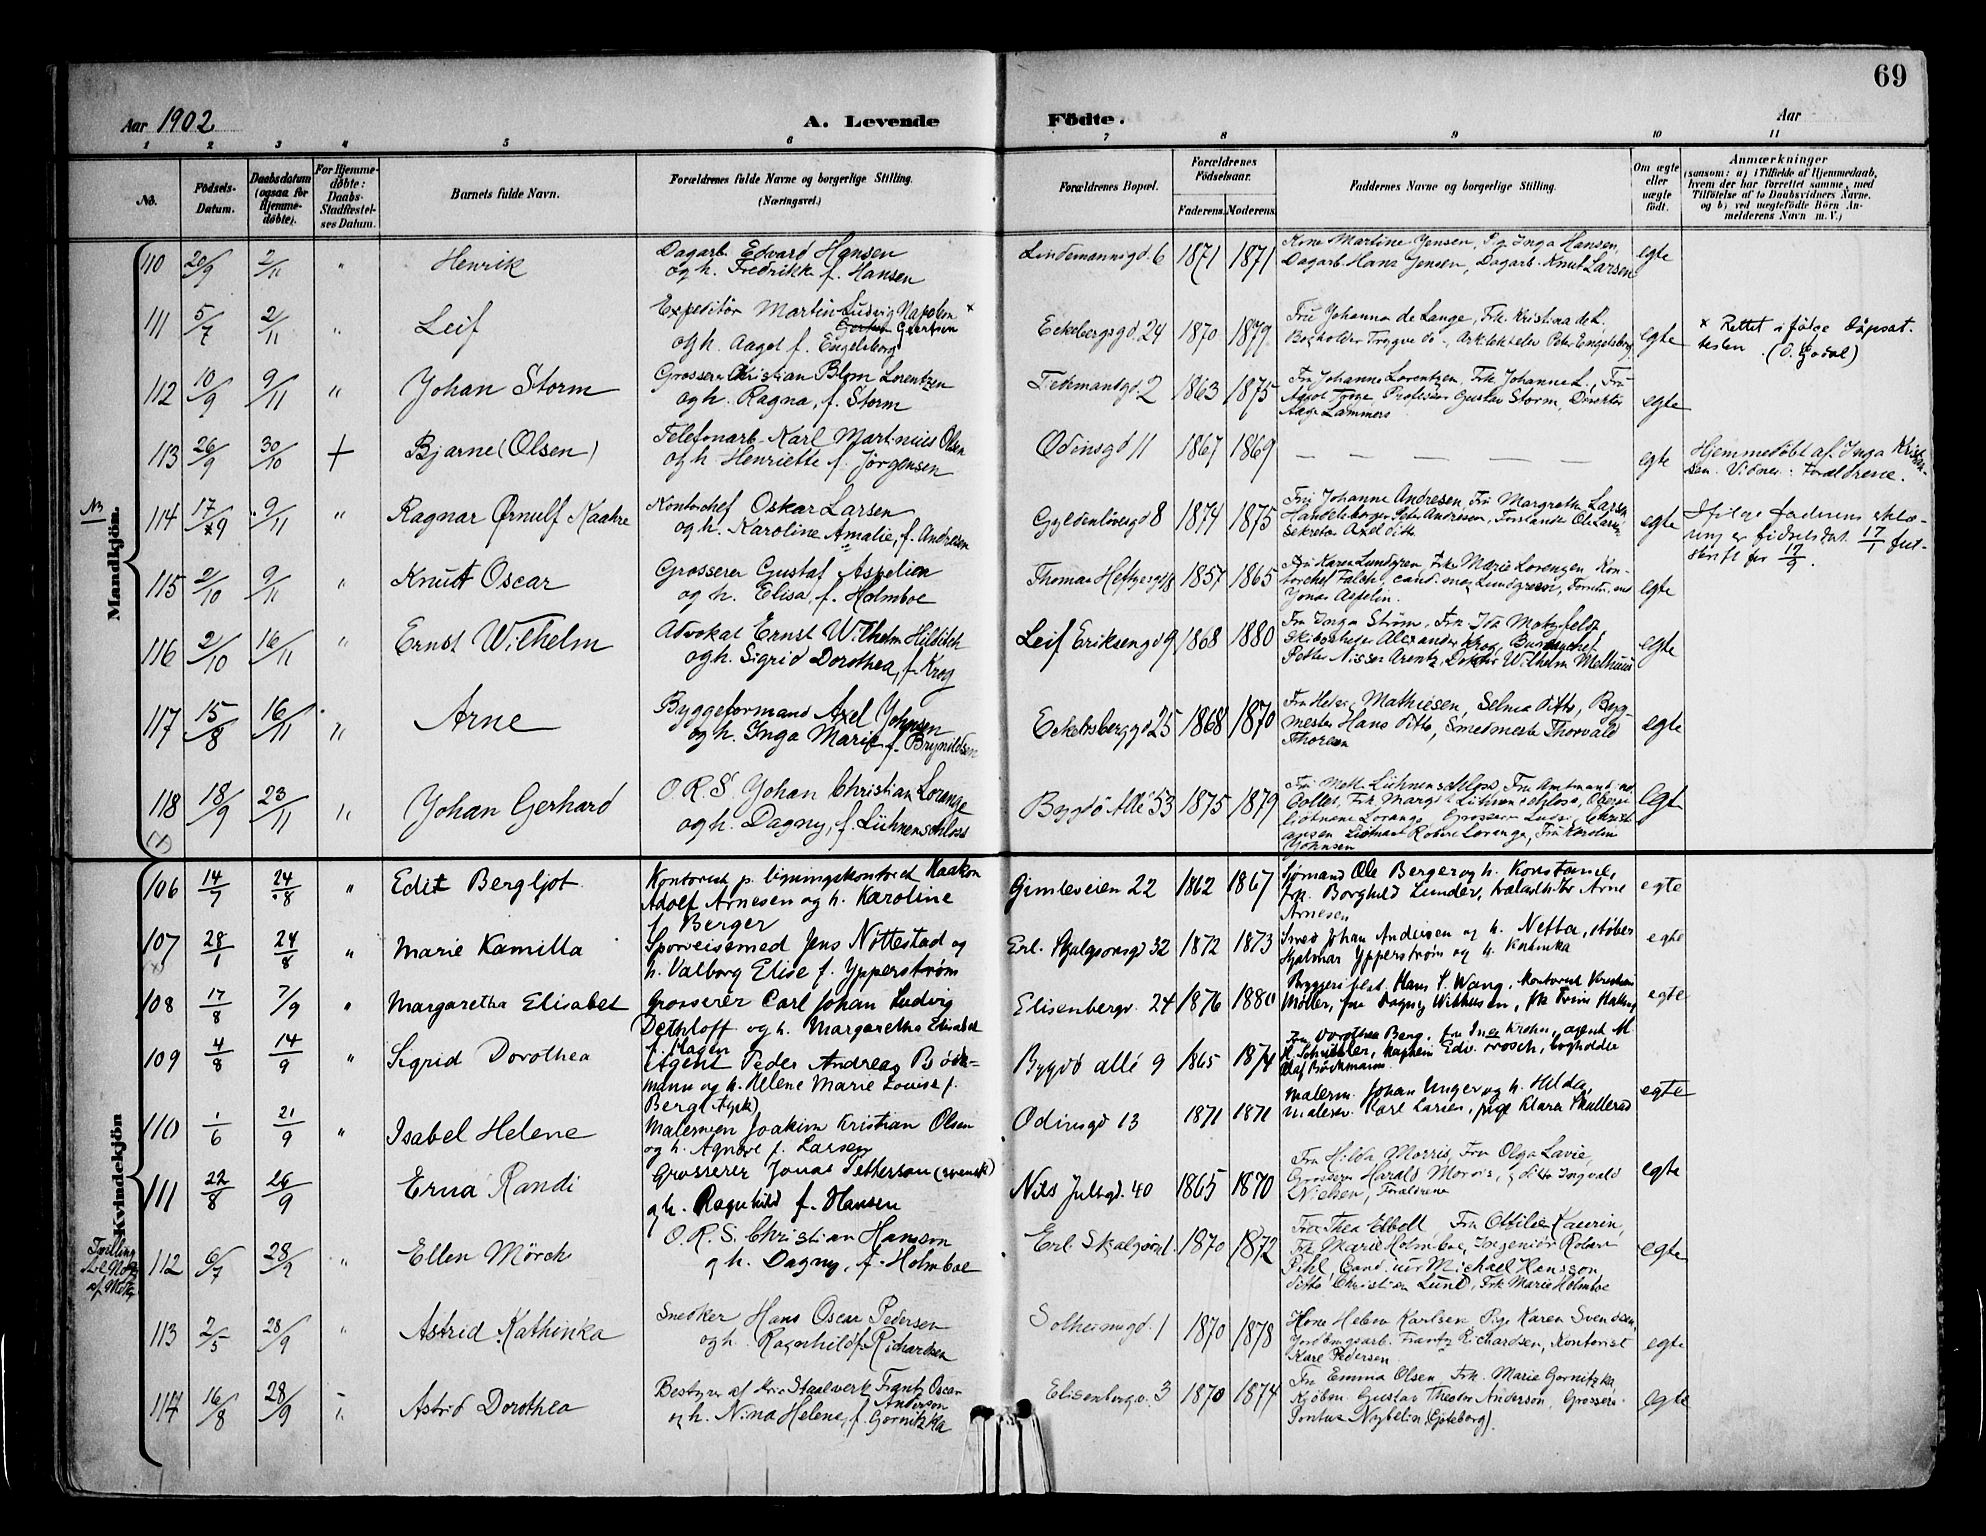 69
Aar 1902 A. Levende Födte. Aar
1 2 3 4 5 6 7 8 9 10 11
No. Födsels-Datum. Daabsdatum (ogsaa for Hjemmedöbte). For Hjemmedöbte: Daabs-Stadfæstelses Datum. Barnets fulde Navn. Forældrenes fulde Navne og borgerlige Stilling. (Næringsvei.) Forældrenes Bopæl. Forældrenes Födselsaar. Faderens. Moderens. Faddernes Navne og borgerlige Stilling. Om ægte eller uægte födt. Anmærkninger (saasom: a) i Tilfælde af Hjemmedaab, hvem der har forrettet samme, med Tilföielse af to Daabsvidners Navne, og b) ved uægtefödte Börn Anmelderens Navn m. V.)
Mandkjön.
110 20/9 2/11 " Henrik Dagarb. Edvard Hansen
og h. Fredrikk f. Hansen Lindemannsgd. 6 1871 1871 Kone Martine Jensen, Pig. Inga Hansen,
Dagarb. Hans Jensen, Dagarb. Knut Larsen egte
111 5/7 2/11 " Leif Expeditör Martin Ludvig Napolen x
Gjertsen
og h. Aagot f. Engelsborg Eckebergsgd. 24 1870 1879 Fru Johanna de Lange, Frk. Kristina de L.
Bogholder Trygve do -, Arkitekt Peter Engelsberg egte x Rettet i fölge Dåpsattesten. (O. Godal)
112 10/9 9/11 " Johan Storm Grosserer Christian Blom Lorentzen
og h. Ragna, f. Storm Tidemandsgd 2 1863 1875 Fru Johanne Lorentzen, Frk. Johanne L., Fru
Professor Gustav Storm, Direktör
Aage Lammers egte
113 26/9 30/10 + Bjarne (Olsen) Telefonarb. Karl Martinius Olsen
og h. Henriette f. Jörgensen Odinsgd 11 1867 1869 — — — — — egte Hjemmedöbt af Inga Kristensen. Vidner: Forældrene.
114 17/9 9/11 " Ragnar Ørnulf Kaahre Kontorchef Oskar Larsen
og h. Karoline Amalie, f. Andresen Gyldenlövesgd 8 1874 1875 Fru Johanne Andresen, Fru Margrethe Larsen
Handelsborger Peter Andresen, Ole Larsen
Sekretær Axel ditto egte Ifölge faderens erklæring er födselsdat. 17/1 istedenfor 17/9.
115 2/10 9/11 " Knutt Oscar Grosserer Gustaf Aspelien
og h. Elisa, f. Holmboe Thomas Heftyesgd 1857 1865 Fru Karen Lundgren, Frk Marie Lorengen Kontorchef Falch, cand. Lundgreen,
Jonas Aspelin. egte
116 2/10 16/11 " Ernst Wilhelm Advokat Ernst Wilhelm Hilditch
og h. Sigrid Dorothea, f. Krog Leif Eriksengd 9 1868 1880 Fru Inga Ström, Fru Ida Motzfeldt
Skibsreder Alexander Krog, Bureauchef
Petter Nissen Arentz, Doktor Wilhelm Methuus egte
117 15/8 16/11 " Arne Byggeformand Axel Johnsen
og h. Inga Marie f. Brynildsen Eckersbergsgd 25 1868 1870 Fru Mathiesen, Selma ditto, Bygmester Hans ditto, Smedmester Thorvald
Thoresen egte
118 18/9 23/11 " Johan Gerhard O.R.S. Johan Christian Lorange
og h. Dagny, f. Lühnenschloss Bygdö Allé 53 1875 1879 Fru Lühnenschloss, Fru Amtmand
Frk Margit Lühnenschloss,
Lorange, Grosserer
Robert Lorange, Fru Karolin
Johnsen egte
Kvindekjön
106 14/7 24/8 " Edit Bergljot Kontorist p. ligningskontoret Haakon
Adolf Arnesen og h. Karoline
f. Berger Gimleveien 22 1862 1867 Sjömand Ole Berger og h. Konstanse,
frk. Borghild Lunder, Arne
Arnesen egte
107 28/1 24/8 " Marie Kamilla Sporveismed Jens Nöttestad og
h. Valborg Elise f. Ypperström Erl. Skjalgsonsgd 32 1872 1873 Smed Johan Andersen og h. Netta, stöber
Hjalmar Ypperström og h. Katinka egte
108 17/8 7/9 " Margaretha Elisabet Grosserer Carl Johan Ludvig
Dethloff og h. Margaretha Elisabet
f. Hagen Elisenbergv. 24 1876 1880 Hans S. Wang, Kontorist Kristian
Möller, fru Dagny Wilhusen, egte
109 4/8 14/9 " Sigrid Dorothea Agent Peder Andreas Böckmann og h. Helene Marie Louise f.
Berg Bygdö allé 9 1865 1874 fru Dorothea Berg, fru Inga Krohn, agent M
Edv. Grosch, bogholder
Olaf Böckmann egte
110 1/6 21/9 " Isabel Helene Malersven Joakim Kristian Olsen
og h. Agnore f. Larsen Odinsgd 13 1871 1871 malerm. Johan Unger og h. Hilda,
malersv. Karl Larsen, pige Klara Skullerud
111 22/8 26/9 Erna Randi Grosserer Jonas Petterson (svensk)
og h. Ragnhild f. Hansen Nils Julsgd. 40 1865 1870 Fru Hilda Morris, Fru Olga Lavie,
Grosserer Harald Morris, ditto Ingvald
Nielsen, Forældrene egte
Tvilling
112 6/7 28/9 " Ellen Mörch O.R.S. Christian Hansson
og h. Dagny, f. Holmboe Erl. Skalgsöns 1870 1872 Fru Thea Ebbell, Fru Ottilie Kaurin,
Frk Marie Holmboe, Ingeniör Rolav
Pihl, Cand. iur Michael Hansson
ditto Christian Lund, Frk Marie Holmboe egte
113 2/5 28/9 " Astrid Kathinka Snedker Hans Oscar Pedersen
og h. Ragnhild f. Richardsen Solheimsgd. 1 1870 1878 Kone Helen Karlsen, Pige Karen Svendsen,
Jordbrugsarb. Frantz Richardsen, Kontorist
Karl Pedersen egte
114 16/8 28/9 " Astrid Dorothea Bestyrer af Staalverk Frantz Oscar
Anderson
og h. Nina Helene, f. Gornitzka Elisenbergv. 3 1870 1874 Fru Emma Olsen, Frk. Marie Gornitzka,
Kjöbm. Gustav Theodor Anderson, Grosserer
Pontus Nybelin (Göteborg). egte